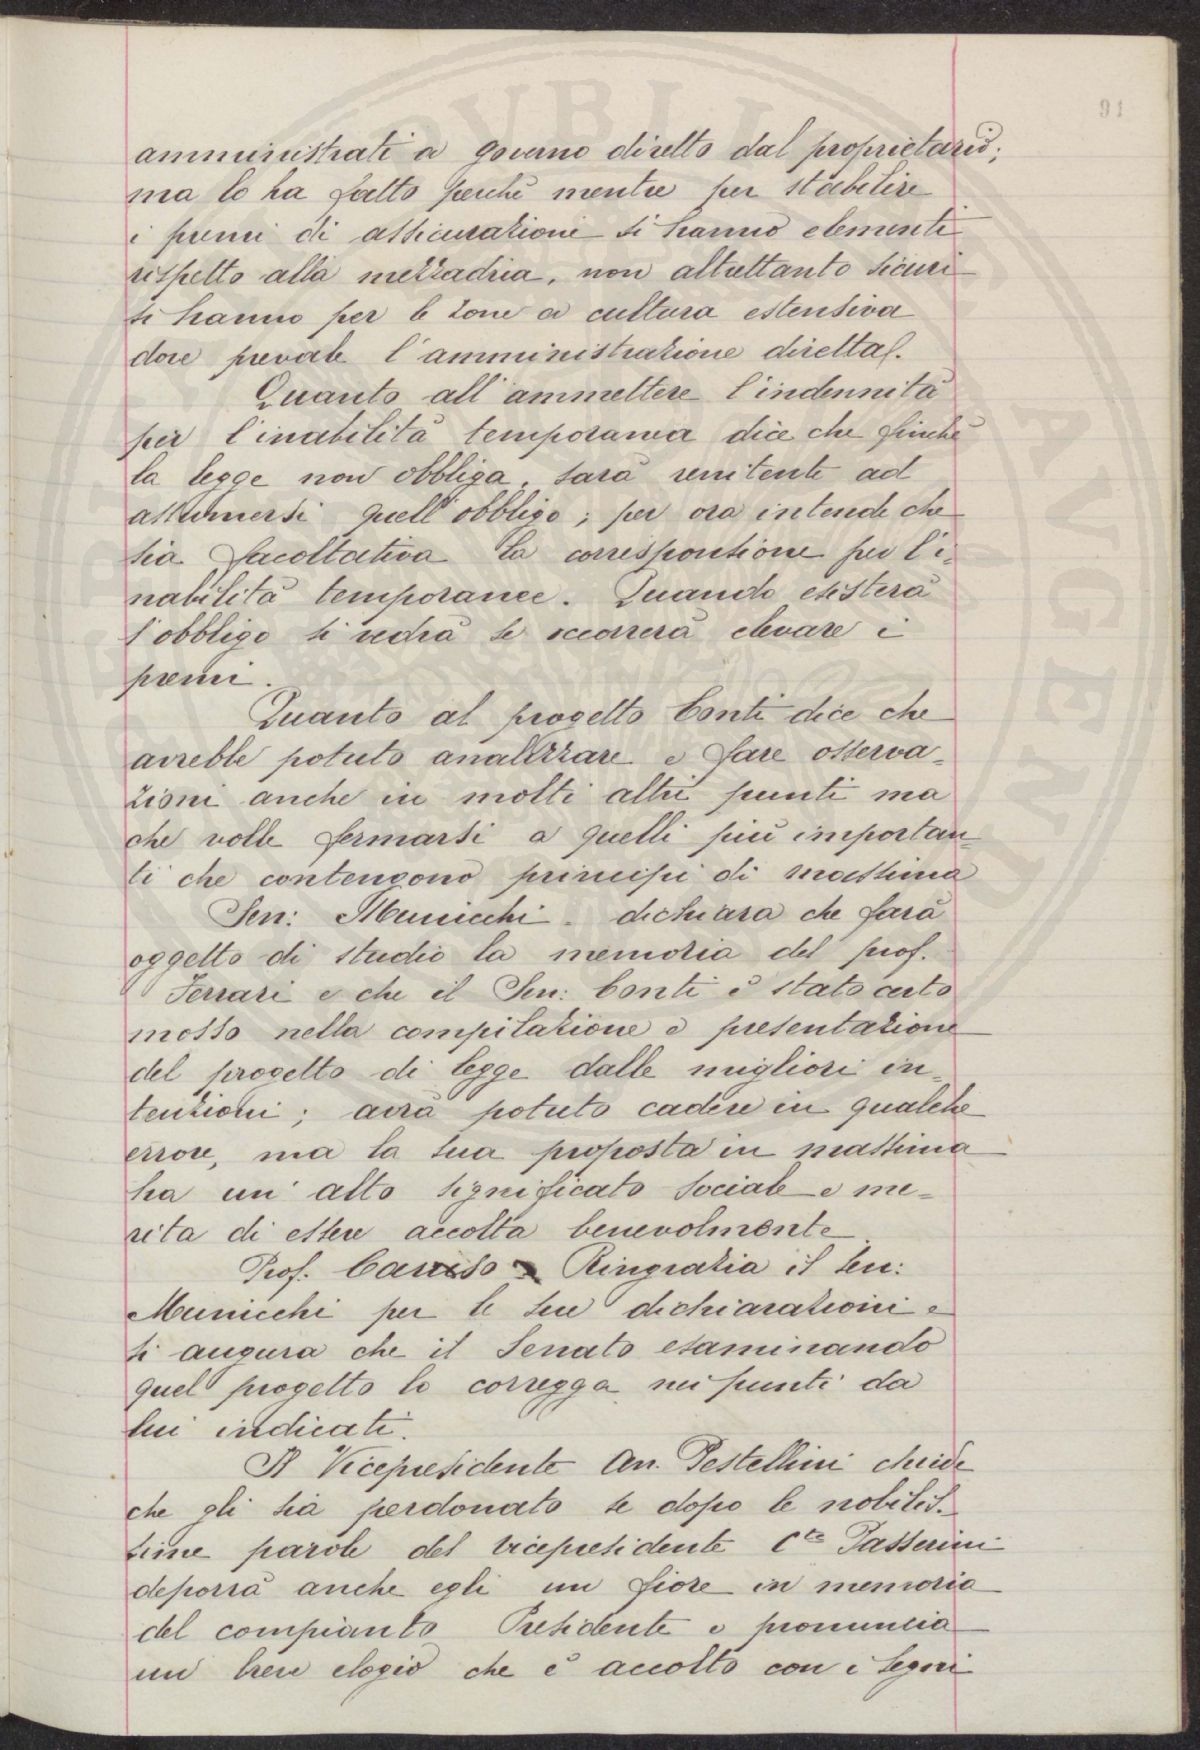 91
amministrati a governo diretto dal proprietario;
ma lo ha fatto perchè mentre per stabilire
i premi di assicurazione si hanno elementi
rispetto alla mezzadria, non altrettanto sicuri
si hanno per le zone a cultura estensiva
dove prevale l'amministrazione diretta.
Quanto all'ammettere l'indennità
per l'inabilità temporanea dice che finchè
la legge non obbliga, sarà renitente ad
assumersi quell'obbligo; per ora intende che
sia facoltativa la corresponsione per l'i-
nabilità temporanee. Quando esisterà
l'obbligo si vedrà se occorrerà elevare i
premi.
Quanto al progetto Conti dice che
avrebbe potuto analizzare e fare osserva=
zioni anche in molti altri punti ma
che volle fermarsi a quelli più importan=
ti che contengono principi di massima
Sen: Municchi - dichiara che farà
oggetto di studio la memoria del prof.
Ferrari e che il Sen: Conti è stato certo
mosso nella compilazione e presentazione
del progetto di legge dalle migliori in=
tenzioni; avrà potuto cadere in qualche
errore, ma la sua proposta in massima
ha un'alto significato sociale e me=
rita di essere accolta benevolmente
Prof. Caruso - Ringrazia il Sen:
Municchi per le sue dichiarazioni e
si augura che il Senato esaminando
quel progetto lo corregga nei punti da
lui indicati.
Il Vicepresidente On. Pestellini chiede
che gli sia perdonato se dopo le nobilis-
sime parole del vicepresidente C.te Passerini
deporrà anche egli un fiore in memoria
del compianto Presidente e pronuncia
un breve elogio che è accolto con i segni